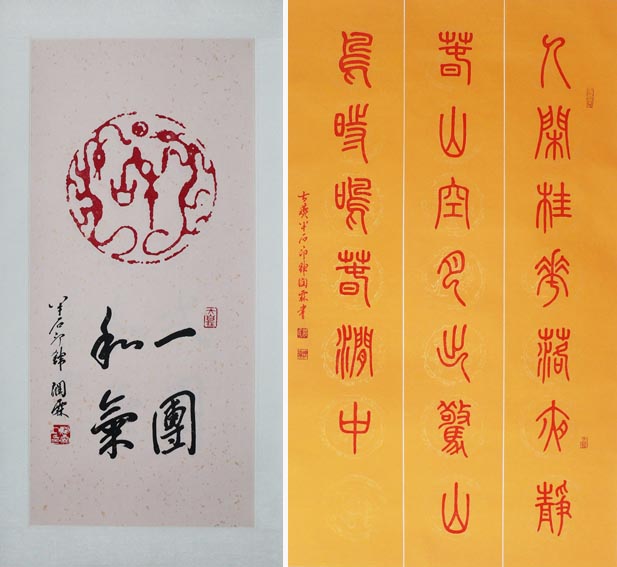 一團
和氣
半石印 潤霖
人閑桂花落夜靜
春山空月出驚山
鳥時鳴春澗中
半石印 書